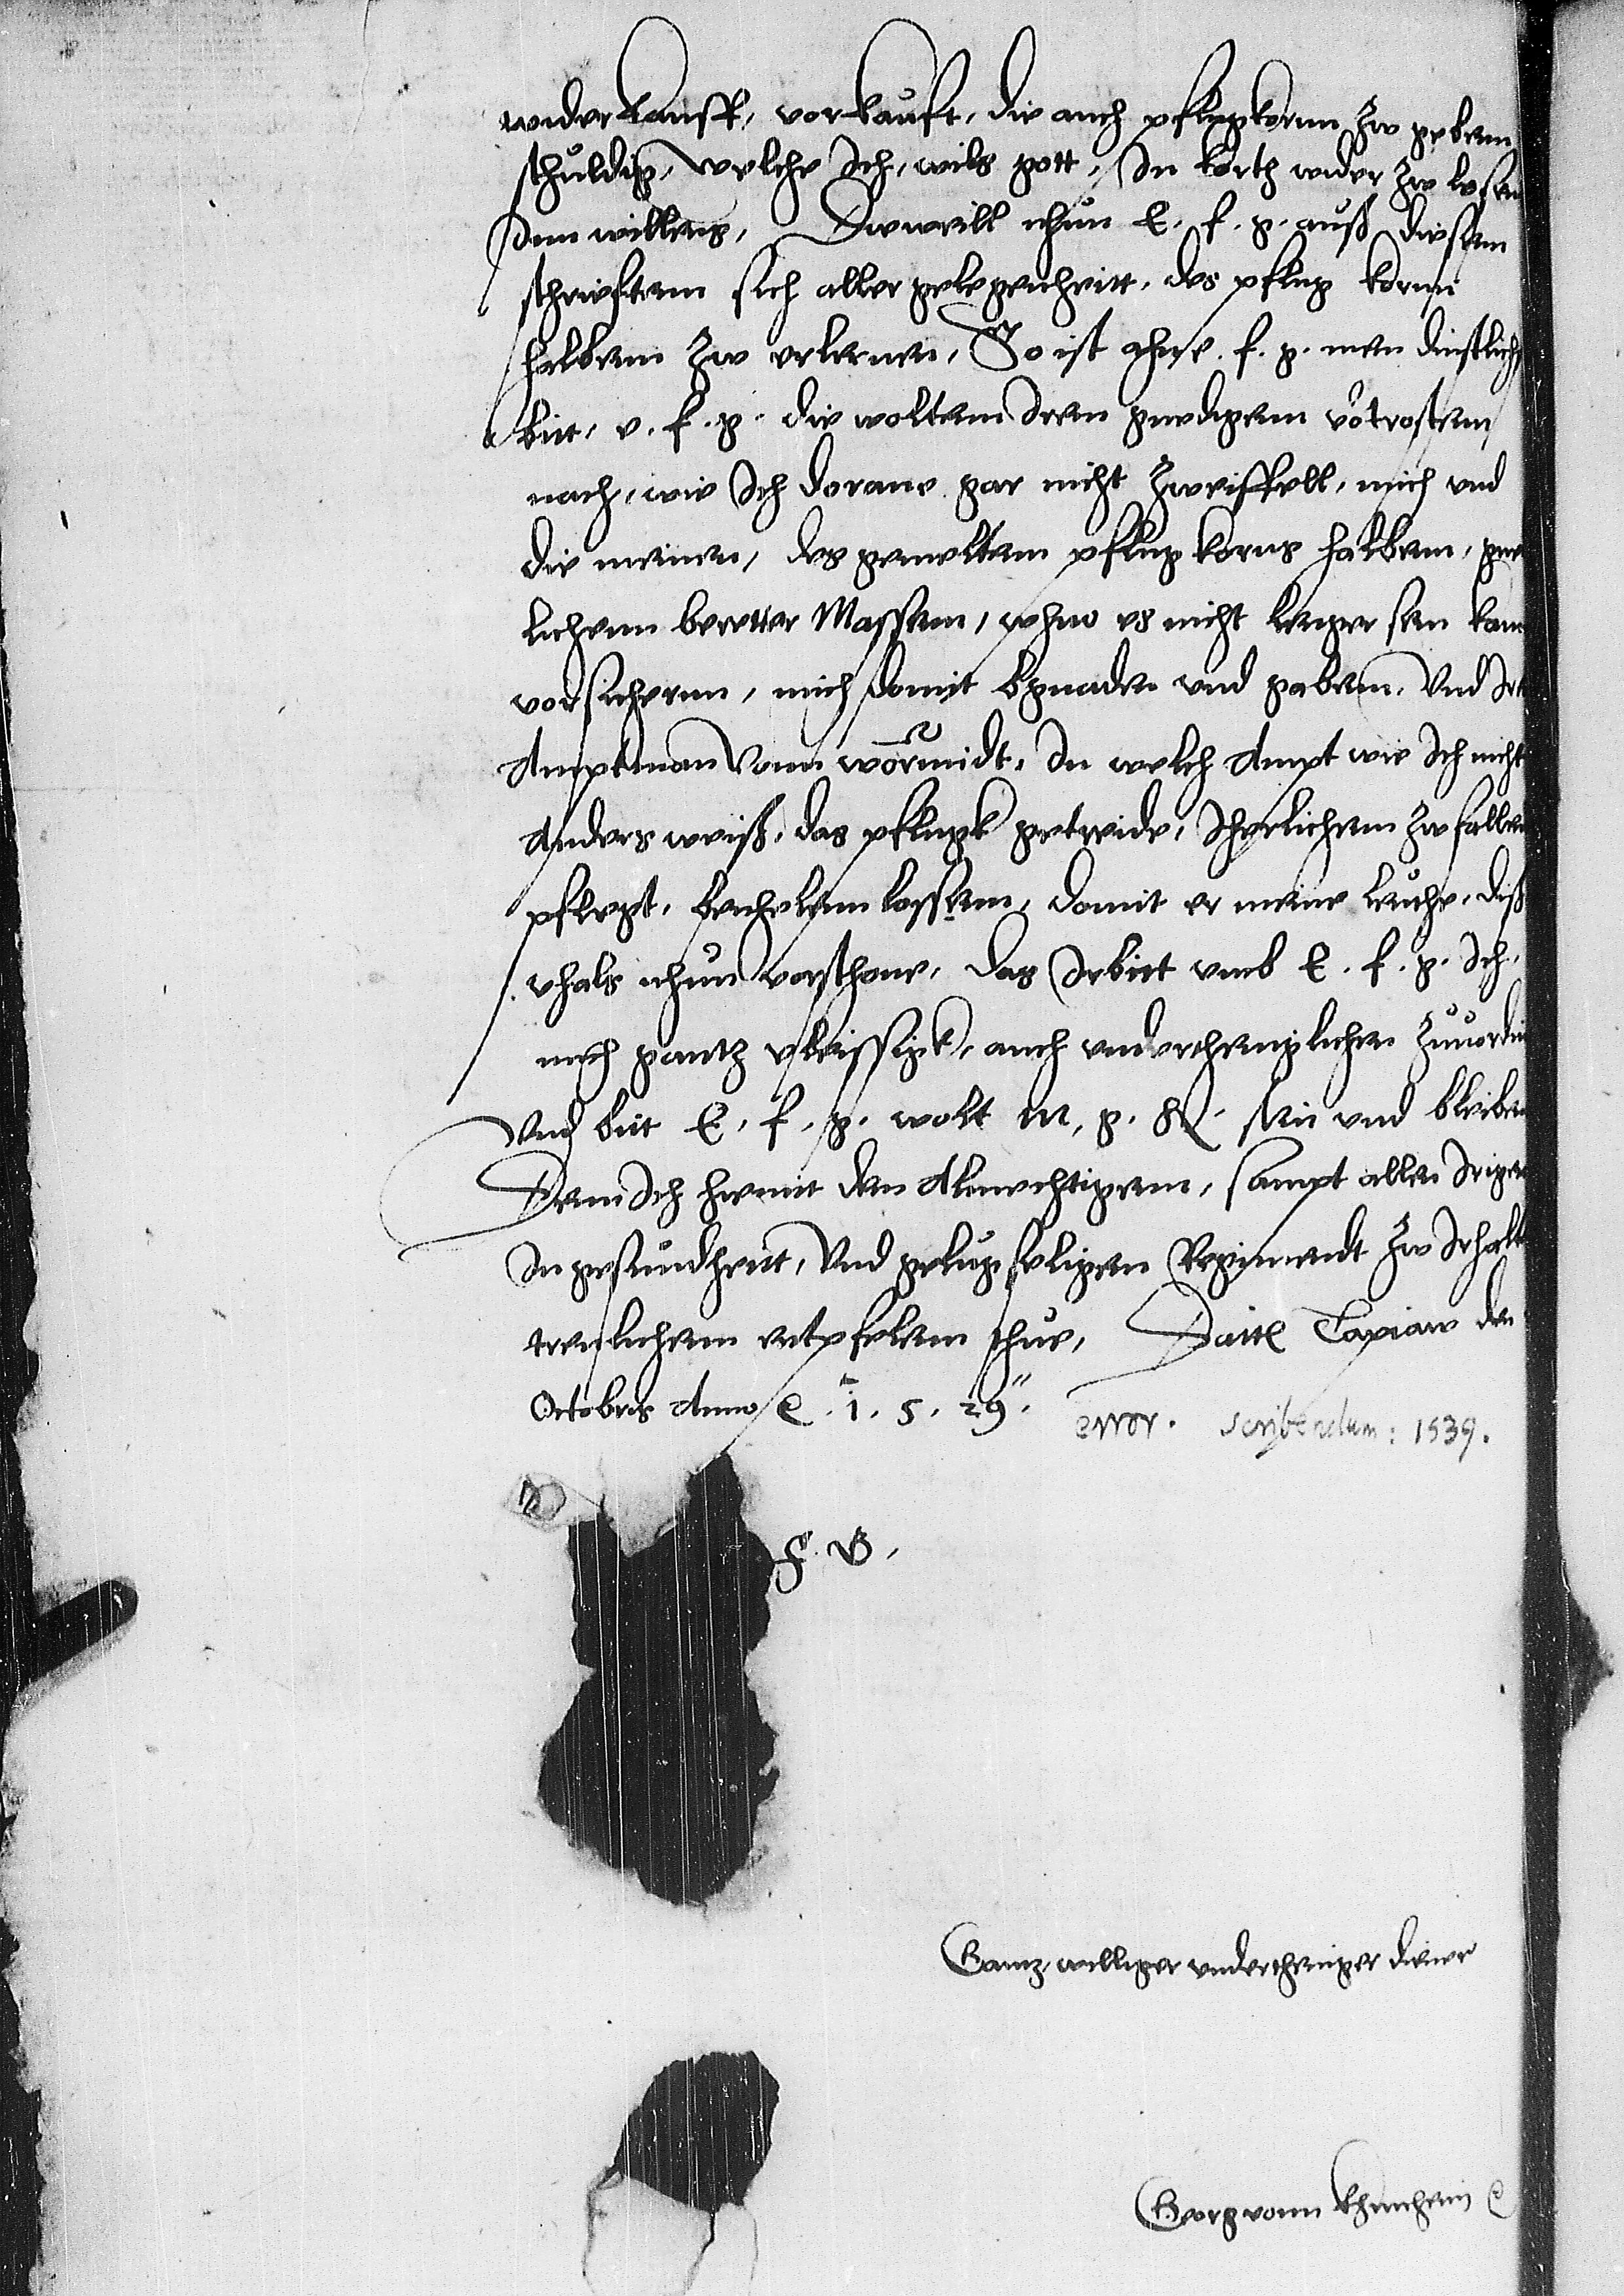 widerkauff, vorkauft, die auch pflugkornn zw gebenn
schuldig, welche Ich, wils gott, In körtz wider zw lesen
Dem willens, Dieweill nhun E. f. g. auß diesenn
schriefftenn sich aller gelegenheitt, des pflug korns
halbenn zw erlernen, So ist ahn e. f. g. mein dinstlich
bitt, e. f. g. die woltenn Iren gnedigenn vortrosten
nach, wie Ich dorane gar nicht zweiffell, mich vnd
die meinen, des gemeltenn pflug korns halbenn, gne
lichenn beretter Massenn, whue es nicht lenger sein kan
vorsichernn, mich domit bgnaden vnd gabenn, Vnd Ire
Amptman Vonn wörmidt, In welch Ampt wie Ich nicht
Anders weiß, das pflugk getreide, Iherlichenn zw fallen
pflegt, beuhelenn lossenn, domit er meine leuthe, diß
vhals nhun vorschone, das Irbitt vmb E. f. g. Ich
mich gantz vleissigk, auch vnderthenglichen zuuordin
Vnd bitt E. f. g. wolt m. g. H. sein vnd bleiben
Denn Ich hiemit dem Almechtigenn, sampt allen Irigen
In gesundheitt, Vnd gelugseligen Regimendt zw Irhalt
treulichenn entpfelenn thue, Datt Tapiaw den
Octobris Anno e. 1. 5. 29.
error. scribendum: 1539.
F. G.
Gantz williger vndertheniger diener
Georg vonn Khunheim